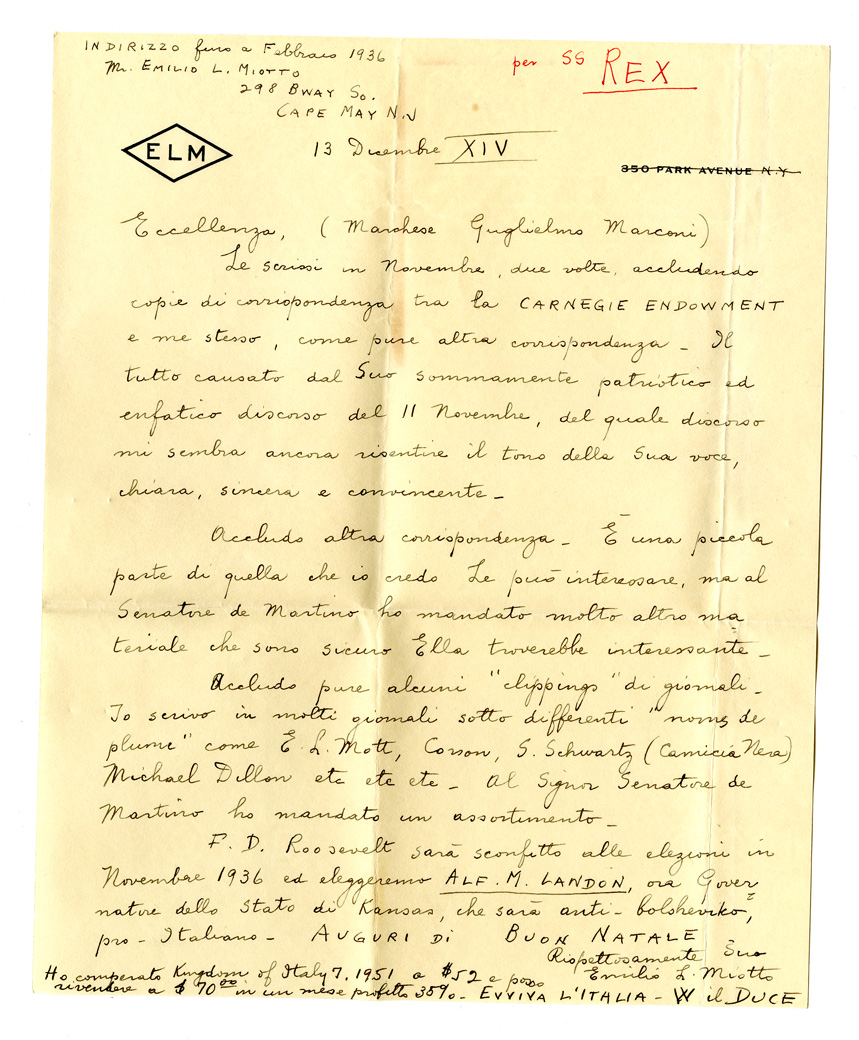 INDIRIZZO fino a Febbraio 1936
Mr. EMILIO L. MIOTTO
298 BWAY So.
CAPE MAY N.J
per SS REX
ELM
13 Dicembre XIV
350 PARK AVENUE N.Y.
Eccellenza, (Marchese Guglielmo Marconi)
Le scrissi in Novembre, due volte, accludendo
copie di corrispondenza tra la CARNEGIE ENDOWMENT
e me stesso, come pure altra corrispondenza - Il
tutto causato dal Suo sommamente patriotico ed
enfatico discorso del 11 Novembre, del quale discorso
mi sembra ancora risentire il tono della Sua voce,
chiara, sincera e convincente -
Accludo altra corrispondenza - È una piccola
parte di quella che io credo Le può interessare, ma al
Senatore de Martino ho mandato molto altro ma
teriale che sono sicuro Ella troverebbe interessante -
Accludo pure alcuni "clippings" di giornali -
Io scrivo in molti giornali sotto differenti "noms de
plume" come E. L. Mott, Corson, S. Schwartz (Camicia Nera)
Michael Dillon etc etc etc - Al Signor Senatore de
Martino ho mandato un assortimento -
F. D. Roosevelt sarà sconfitto alle elezioni in
Novembre 1936 ed eleggeremo ALF. M. LANDON, ora Gover
natore dello Stato di Kansas, che sarà anti-bolsheviko,
pro-Italiano - AUGURI DI BUON NATALE
Rispettosamente Suo
Emilio L. Miotto
Ho comperato Kingdom of Italy 7, 1951 a $52 e posso
rivendere a $70.00 in un mese profitto 35% - EVVIVA L'ITALIA - W il DUCE